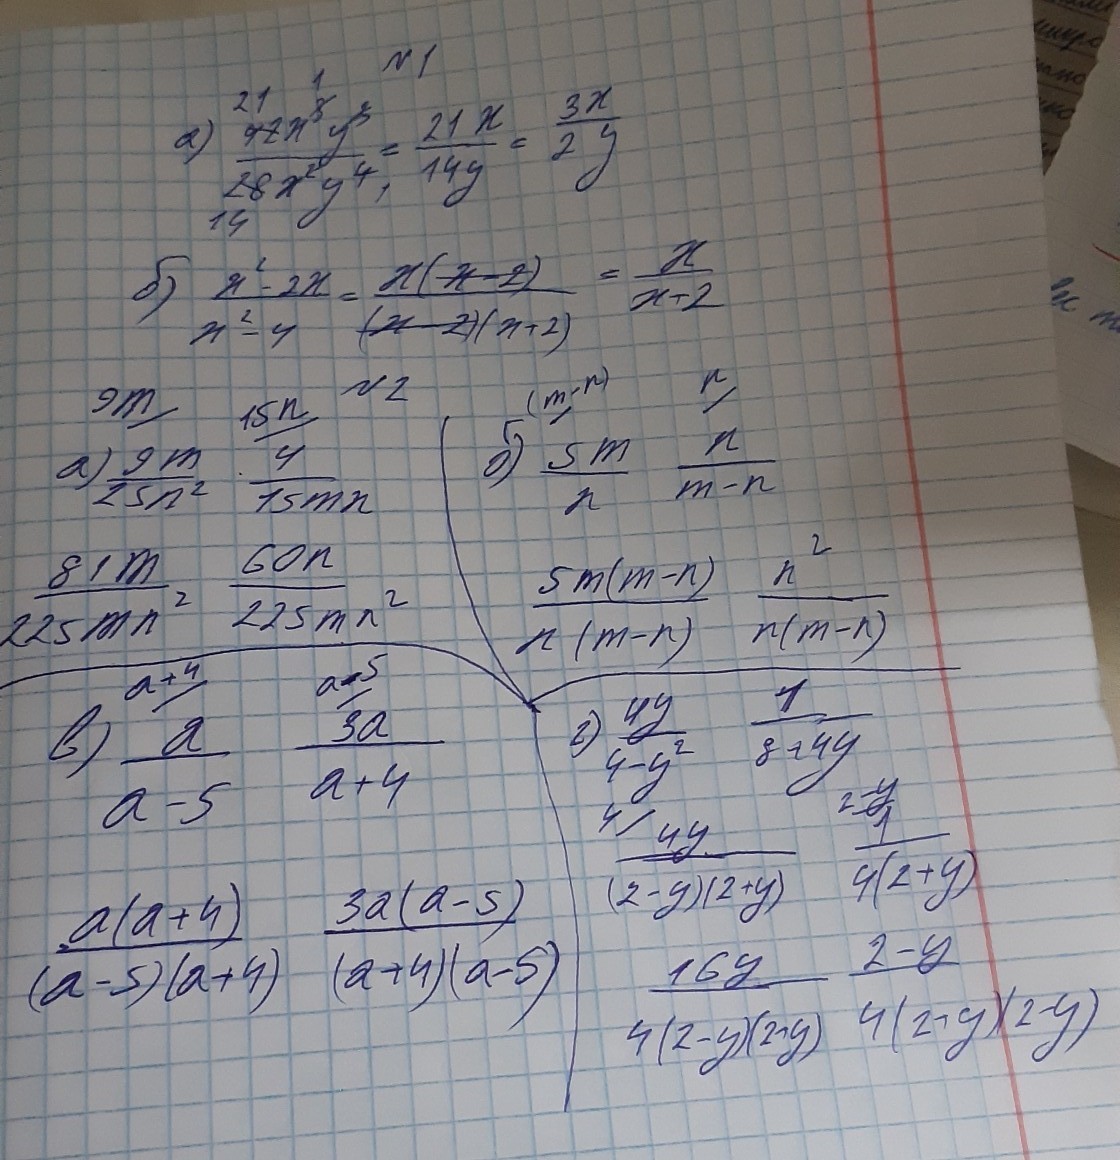 N1
а) 42x³y³/28x²y⁴ = 21x/14y = 3x/2y
21 1
14
б) x²-2x/x²-4 = x(x-2)/(x-2)(x+2) = x/x+2
N2
9m 15n
а) 9m/25n² 4/15mn
81m/225mn² 60n/225mn²
(m-n) n
б) 5m/n n/m-n
5m(m-n)/n(m-n) n²/n(m-n)
a+4 a-5
в) a/a-5 3a/a+4
a(a+4)/(a-5)(a+4) 3a(a-5)/(a+4)(a-5)
г) 4y/4-y² 1/8+4y
4 2-y
4y/(2-y)(2+y) 1/4(2+y)
16y/4(2-y)(2+y) 2-y/4(2+y)(2-y)